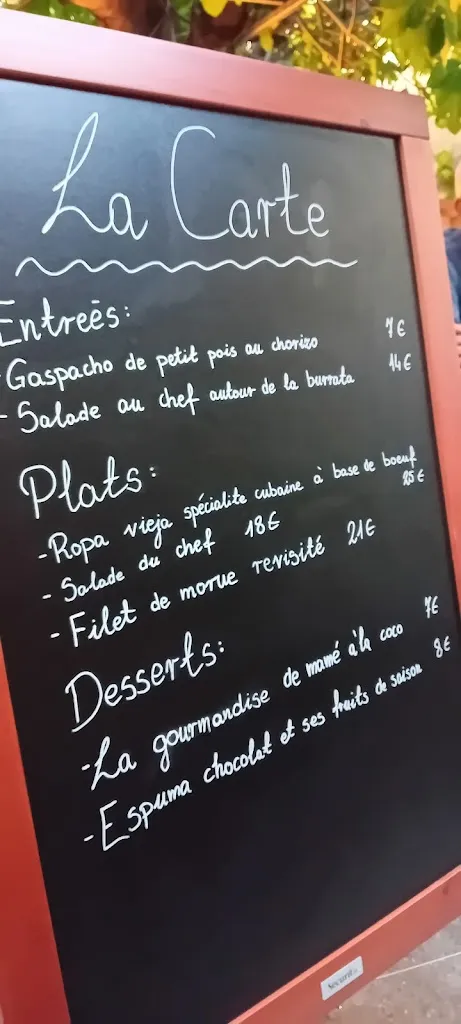 La Carte
Entreés:
- Gaspacho de petit pois au chorizo 7€
- Salade au chef autour de la burrata 14€
Plats:
- Ropa vieja spécialite cubaine à base de boeuf 25€
- Salade du chef 18€
- Filet de morue revisité 21€
Desserts:
- La gourmandise de mamé à la coco 7€
- Espuma chocolat et ses fruits de saison 8€
Securit